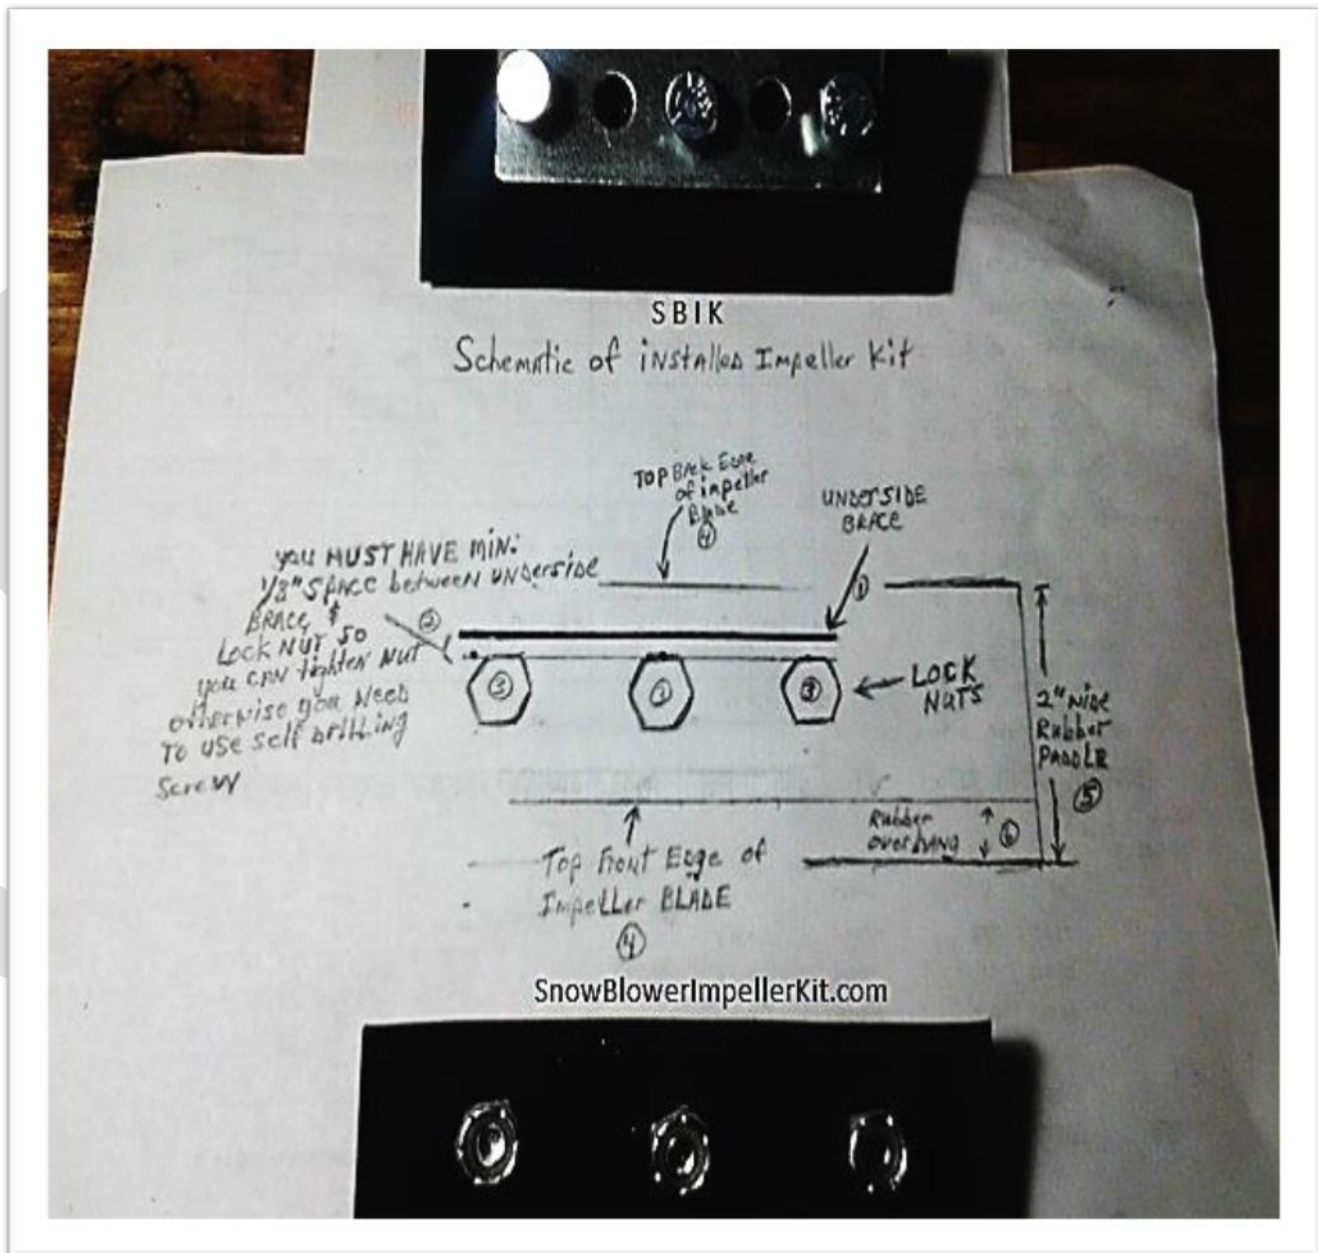 SBIK
Schematic of installed Impeller Kit
TOP Back Edge
of impeller
Blade
④
UNDERSIDE
BRACE
①
you MUST HAVE MIN:
1/8" SPACE between UNDERSIDE
BRACE &
LOCK NUT SO
you CAN tighten NUT
otherwise you NEED
TO USE self DRILLING
Screw
②
③
③
LOCK
NUTS
2" wide
Rubber
PADDLE
⑤
Rubber
overhang
⑥
Top Front Edge of
Impeller BLADE
④
SnowBlowerImpellerKit.com